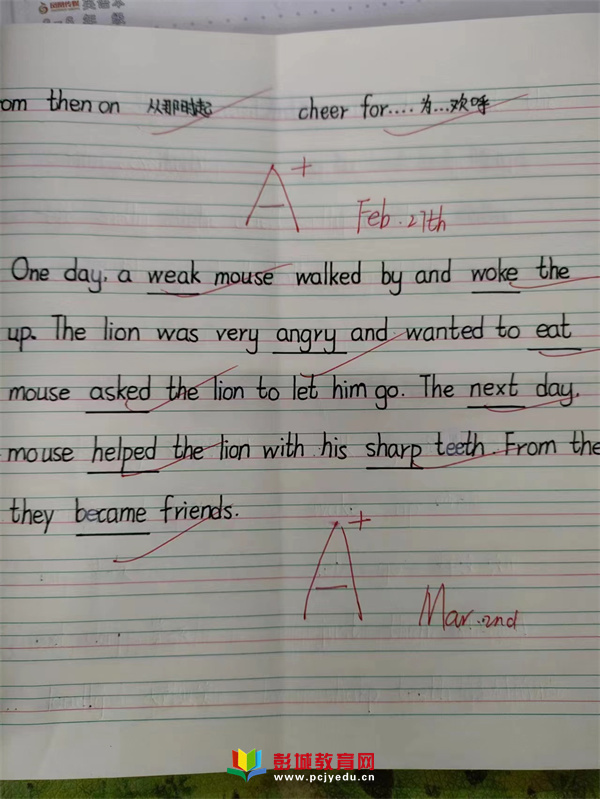 om then on 从那时起 cheer for.... 为...欢呼
A+
Feb. 27th
One day, a weak mouse walked by and woke the
up. The lion was very angry and wanted to eat
mouse asked the lion to let him go. The next day,
mouse helped the lion with his sharp teeth. From the
they became friends.
A+
Mar. 2nd
彭城教育网
www.pcjyedu.cn